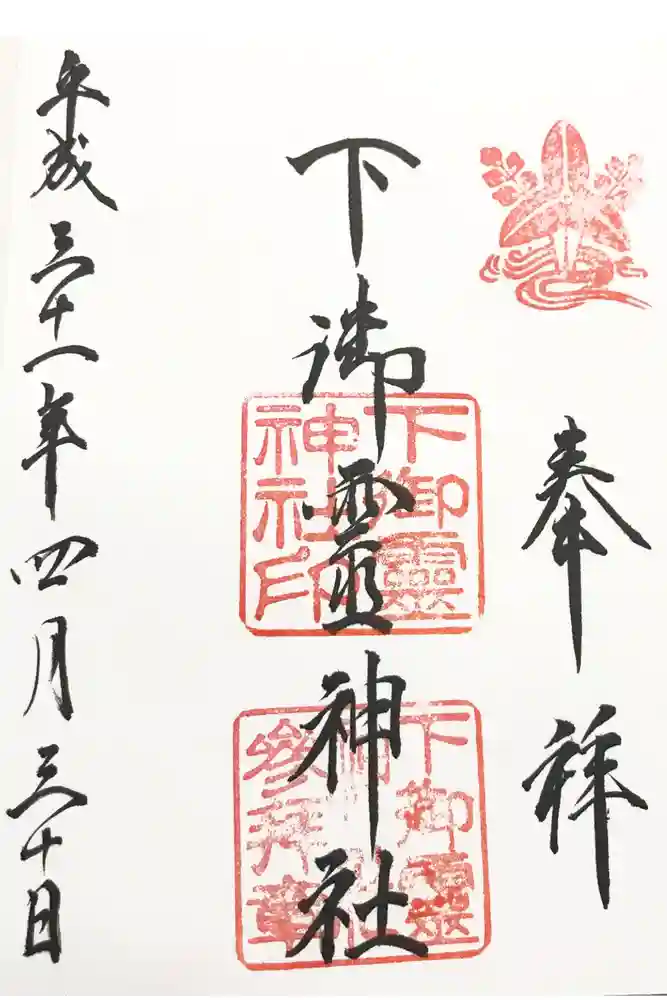 奉祥
下御霊神社
下御靈
神社印
下御靈
神社
參拝章
平成三十一年四月三十日